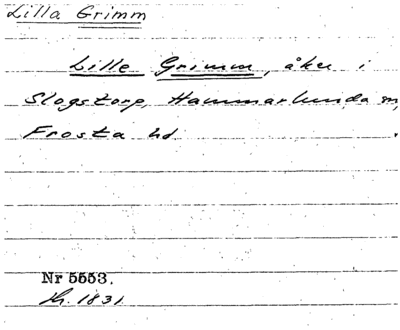 Lilla Grimm
Lille Grimm, åker i
Slogstorp, Hammarlunda sn,
Frosta hd.
Nr 5553.
1831